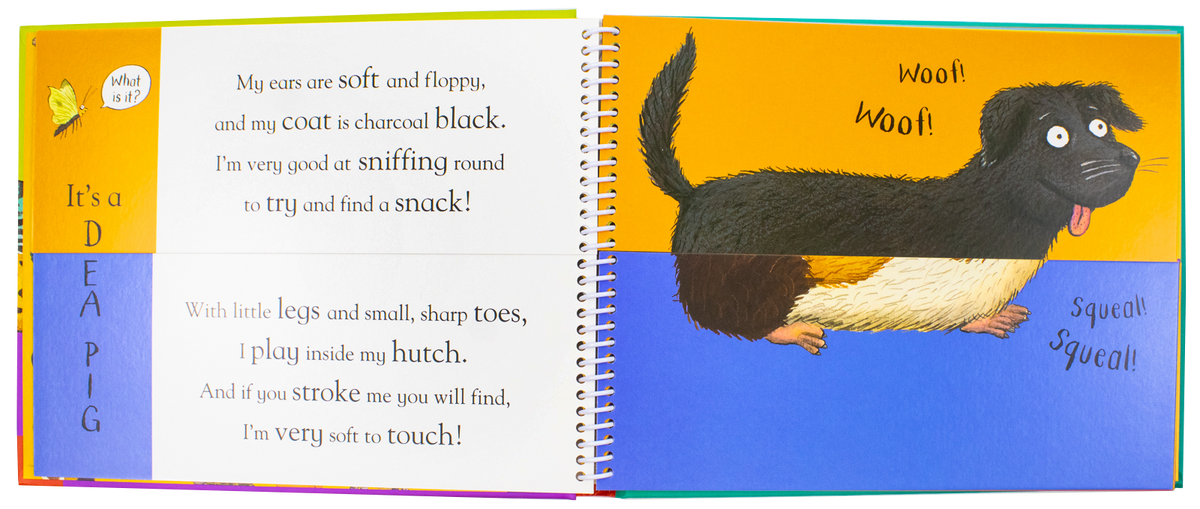 What
is it?
It's a
D
E
A
P
I
G
My ears are soft and floppy,
and my coat is charcoal black.
I'm very good at sniffing round
to try and find a snack!
With little legs and small, sharp toes,
I play inside my hutch.
And if you stroke me you will find,
I'm very soft to touch!
Woof!
Woof!
Squeal!
Squeal!